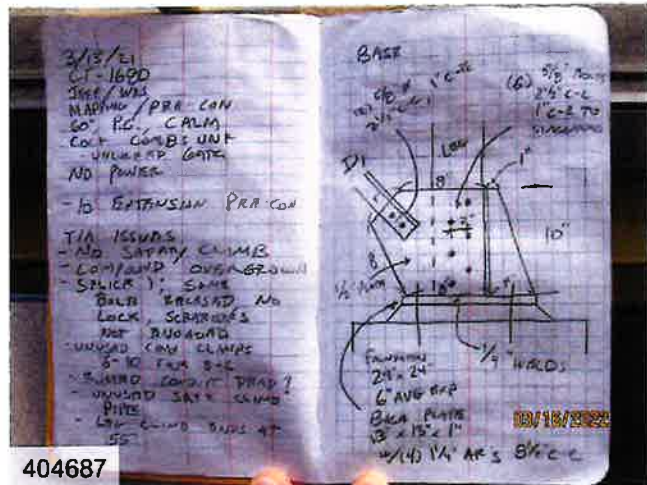 3/15/21
CT-1690
MAPPING / PRE-CON
60°, P.C., CALM
LOCK COMBS UNK
- UNLOCKED GATE
NO POWER
- 10 EXTENSION PRE-CON
TIA ISSUES
- NO SAFETY CLIMB
- COMPOUND OVERGROWN
- SPLICE 1: SOME
BOLTS RELEASED, NO
LOCK,
NOT ENGAGED
- UNUSED COAX CLAMPS
- BURIED CONDUIT DEAD?
- UNUSED SAFE CLIMB
PIPE
- LEG CLIMB ENDS AT
55'
BASE
(2) 5/8" Ø
2 1/2" C-C, 1" C-E
(6) 5/8" BOLTS
2 1/2" C-C
1" C-E TO
LEG
D1
8"
1"
2"
10"
8
1/2" PLATE
FOUNDATION
24" x 24"
6" AVG EXP
1/4" WELDS
BASE PLATE
13" x 13" x 1"
W/(4) 1 1/4" AR'S 8 1/2 C-C
03/16/2022
404687